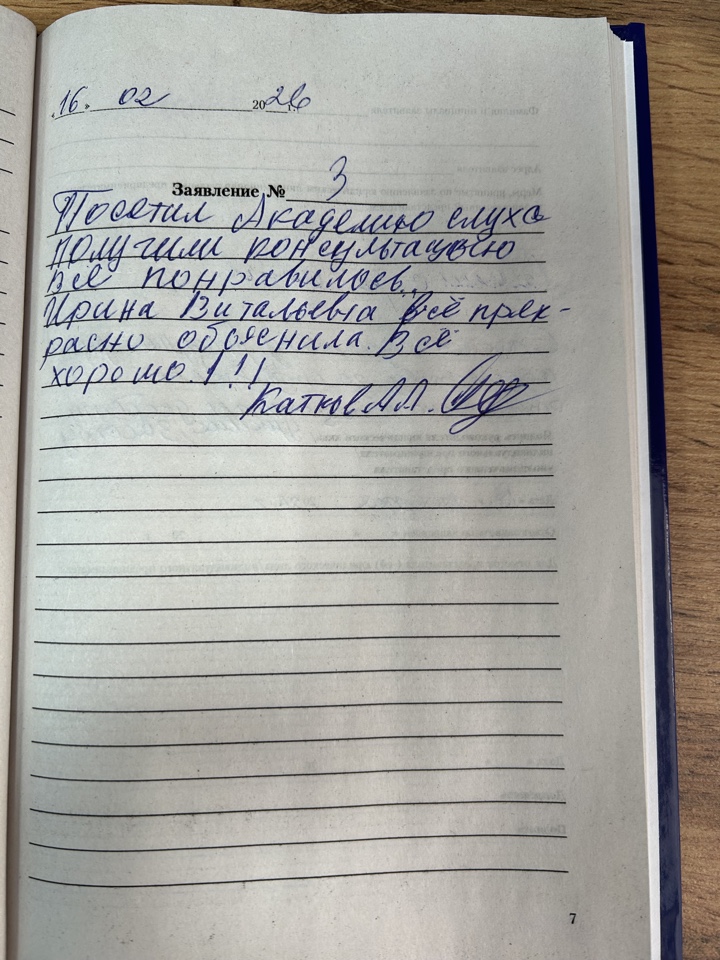 «16» 02 2026 г.
Заявление № 3
Посетил Академию слуха
Получили консультацию
Всё понравилось.
Ирина Витальевна всё прек-
расно обьяснила. Всё
хорошо.!!!
Катков А А.
7